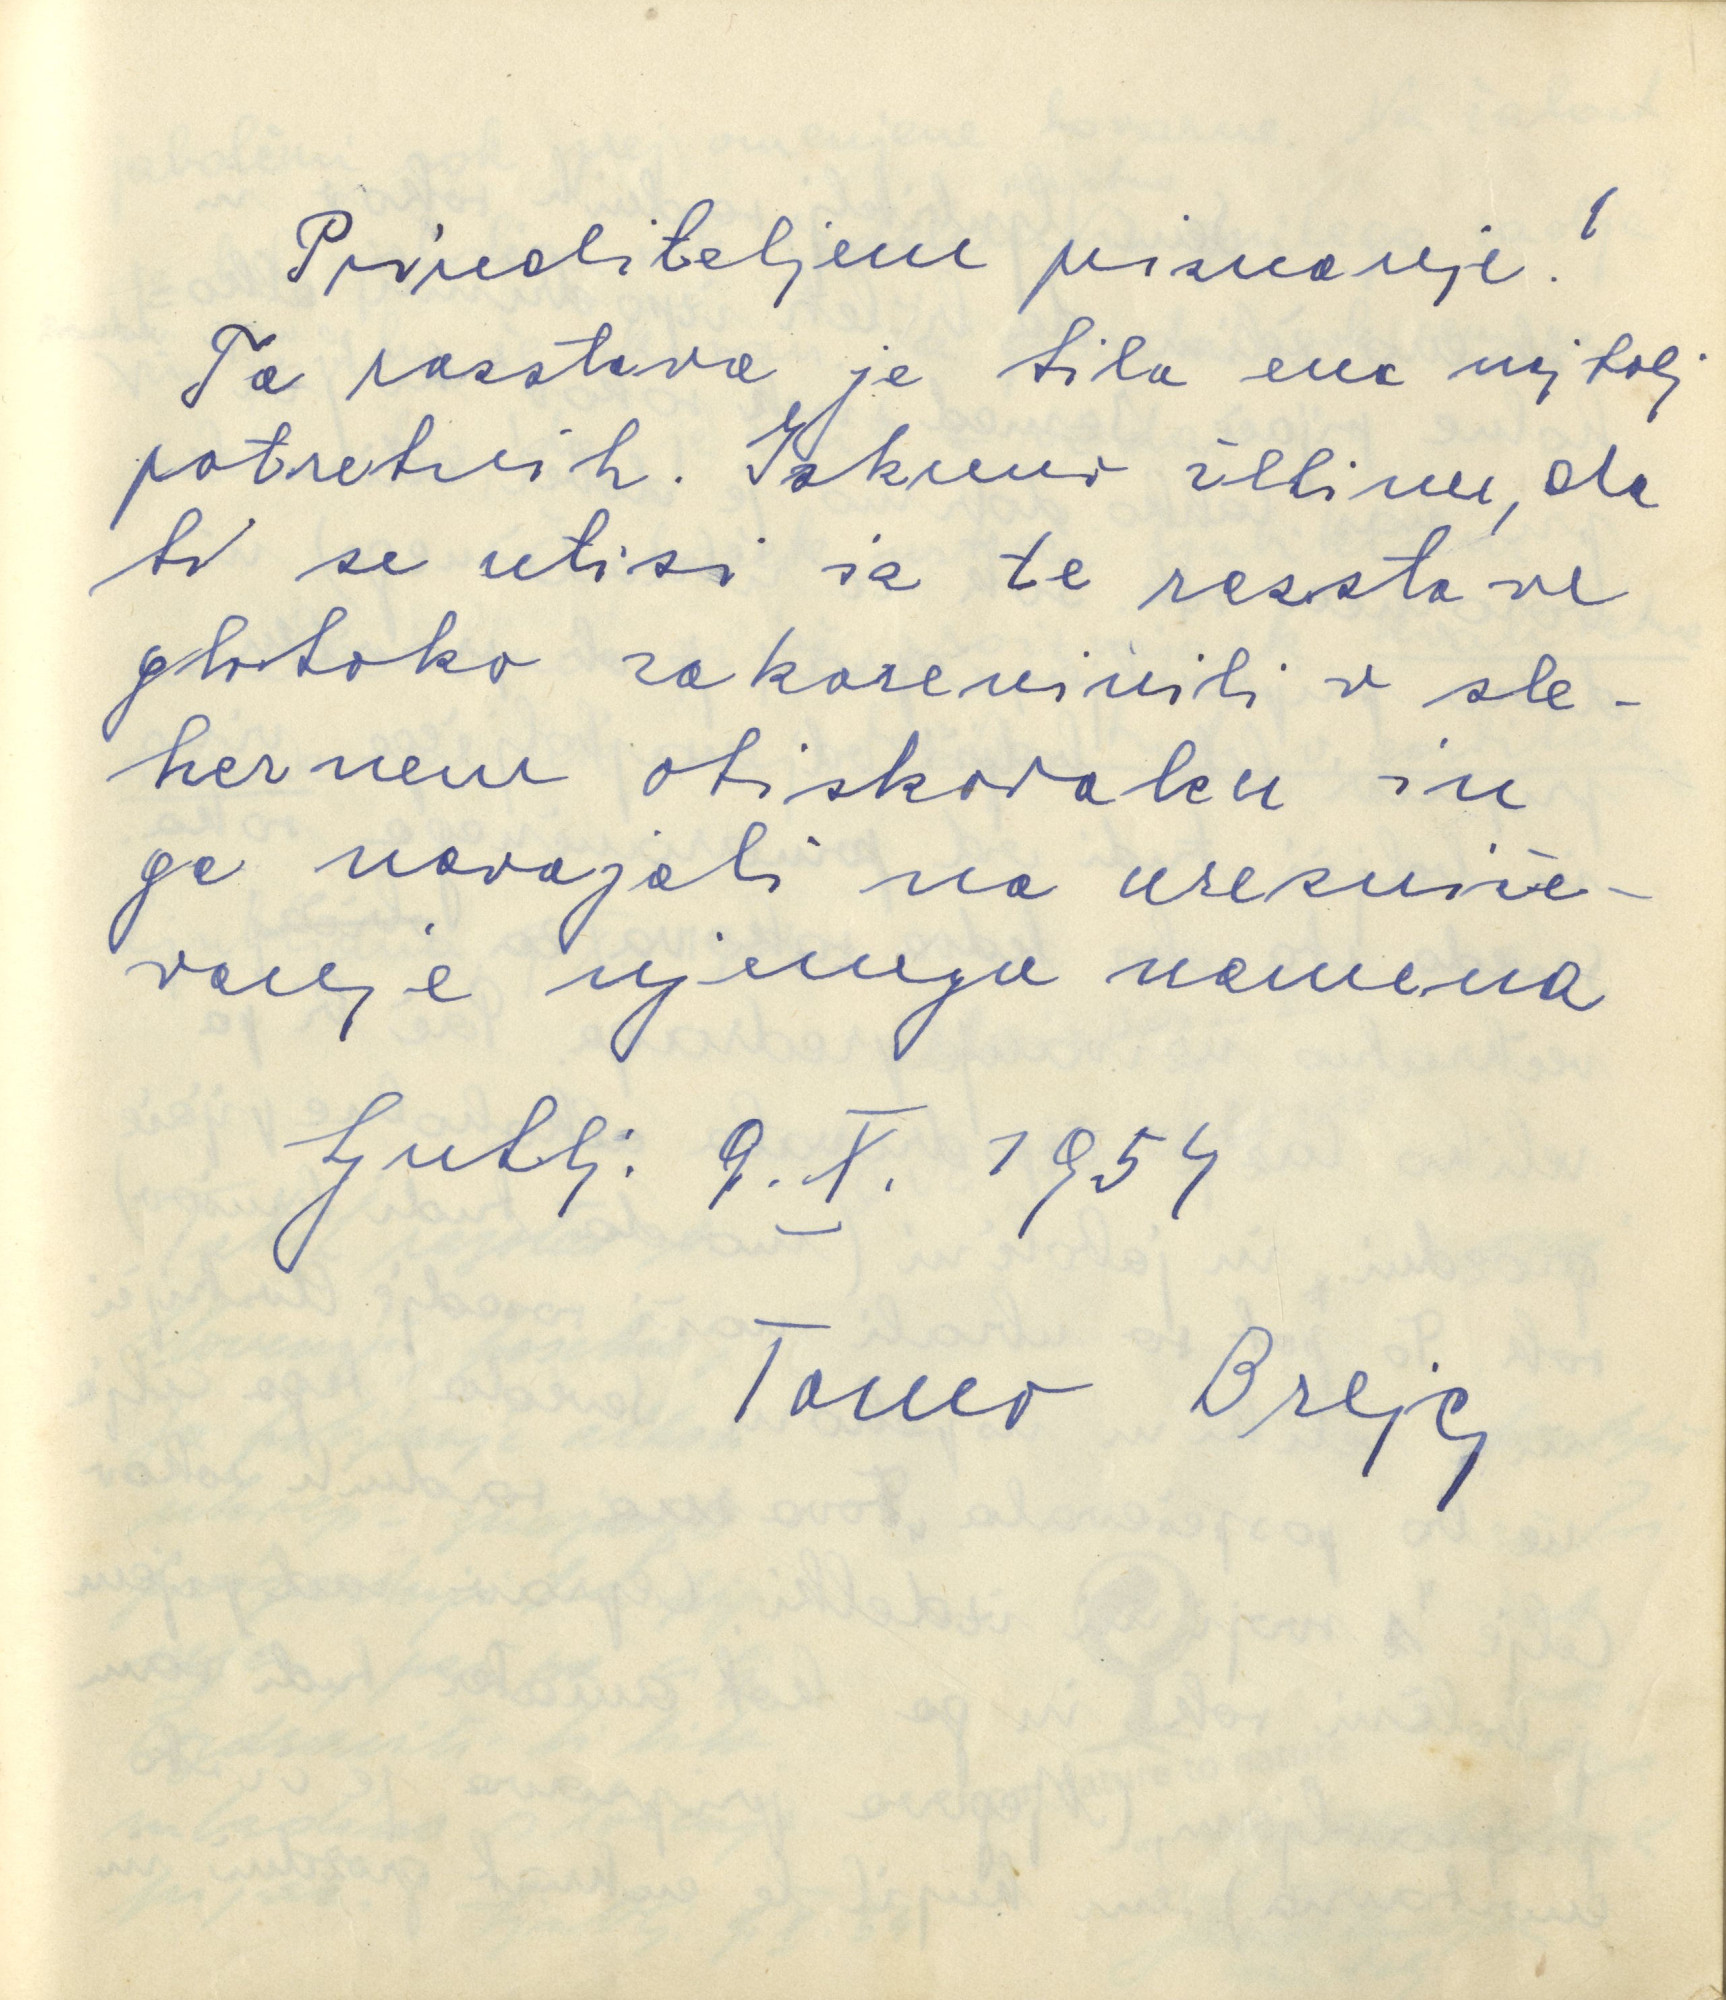 Prirediteljem priznanje!
Ta razstava je bila ena najbolj
potrebnih. Iskreno želimo, da
bi se utisi iz te razstave
globoko zakoreninili v sle-
hernem obiskovalcu in
ga navajali na uresniče-
vanje njenega namena
Ljublj. 9. X. 1954
Tomo Brejc